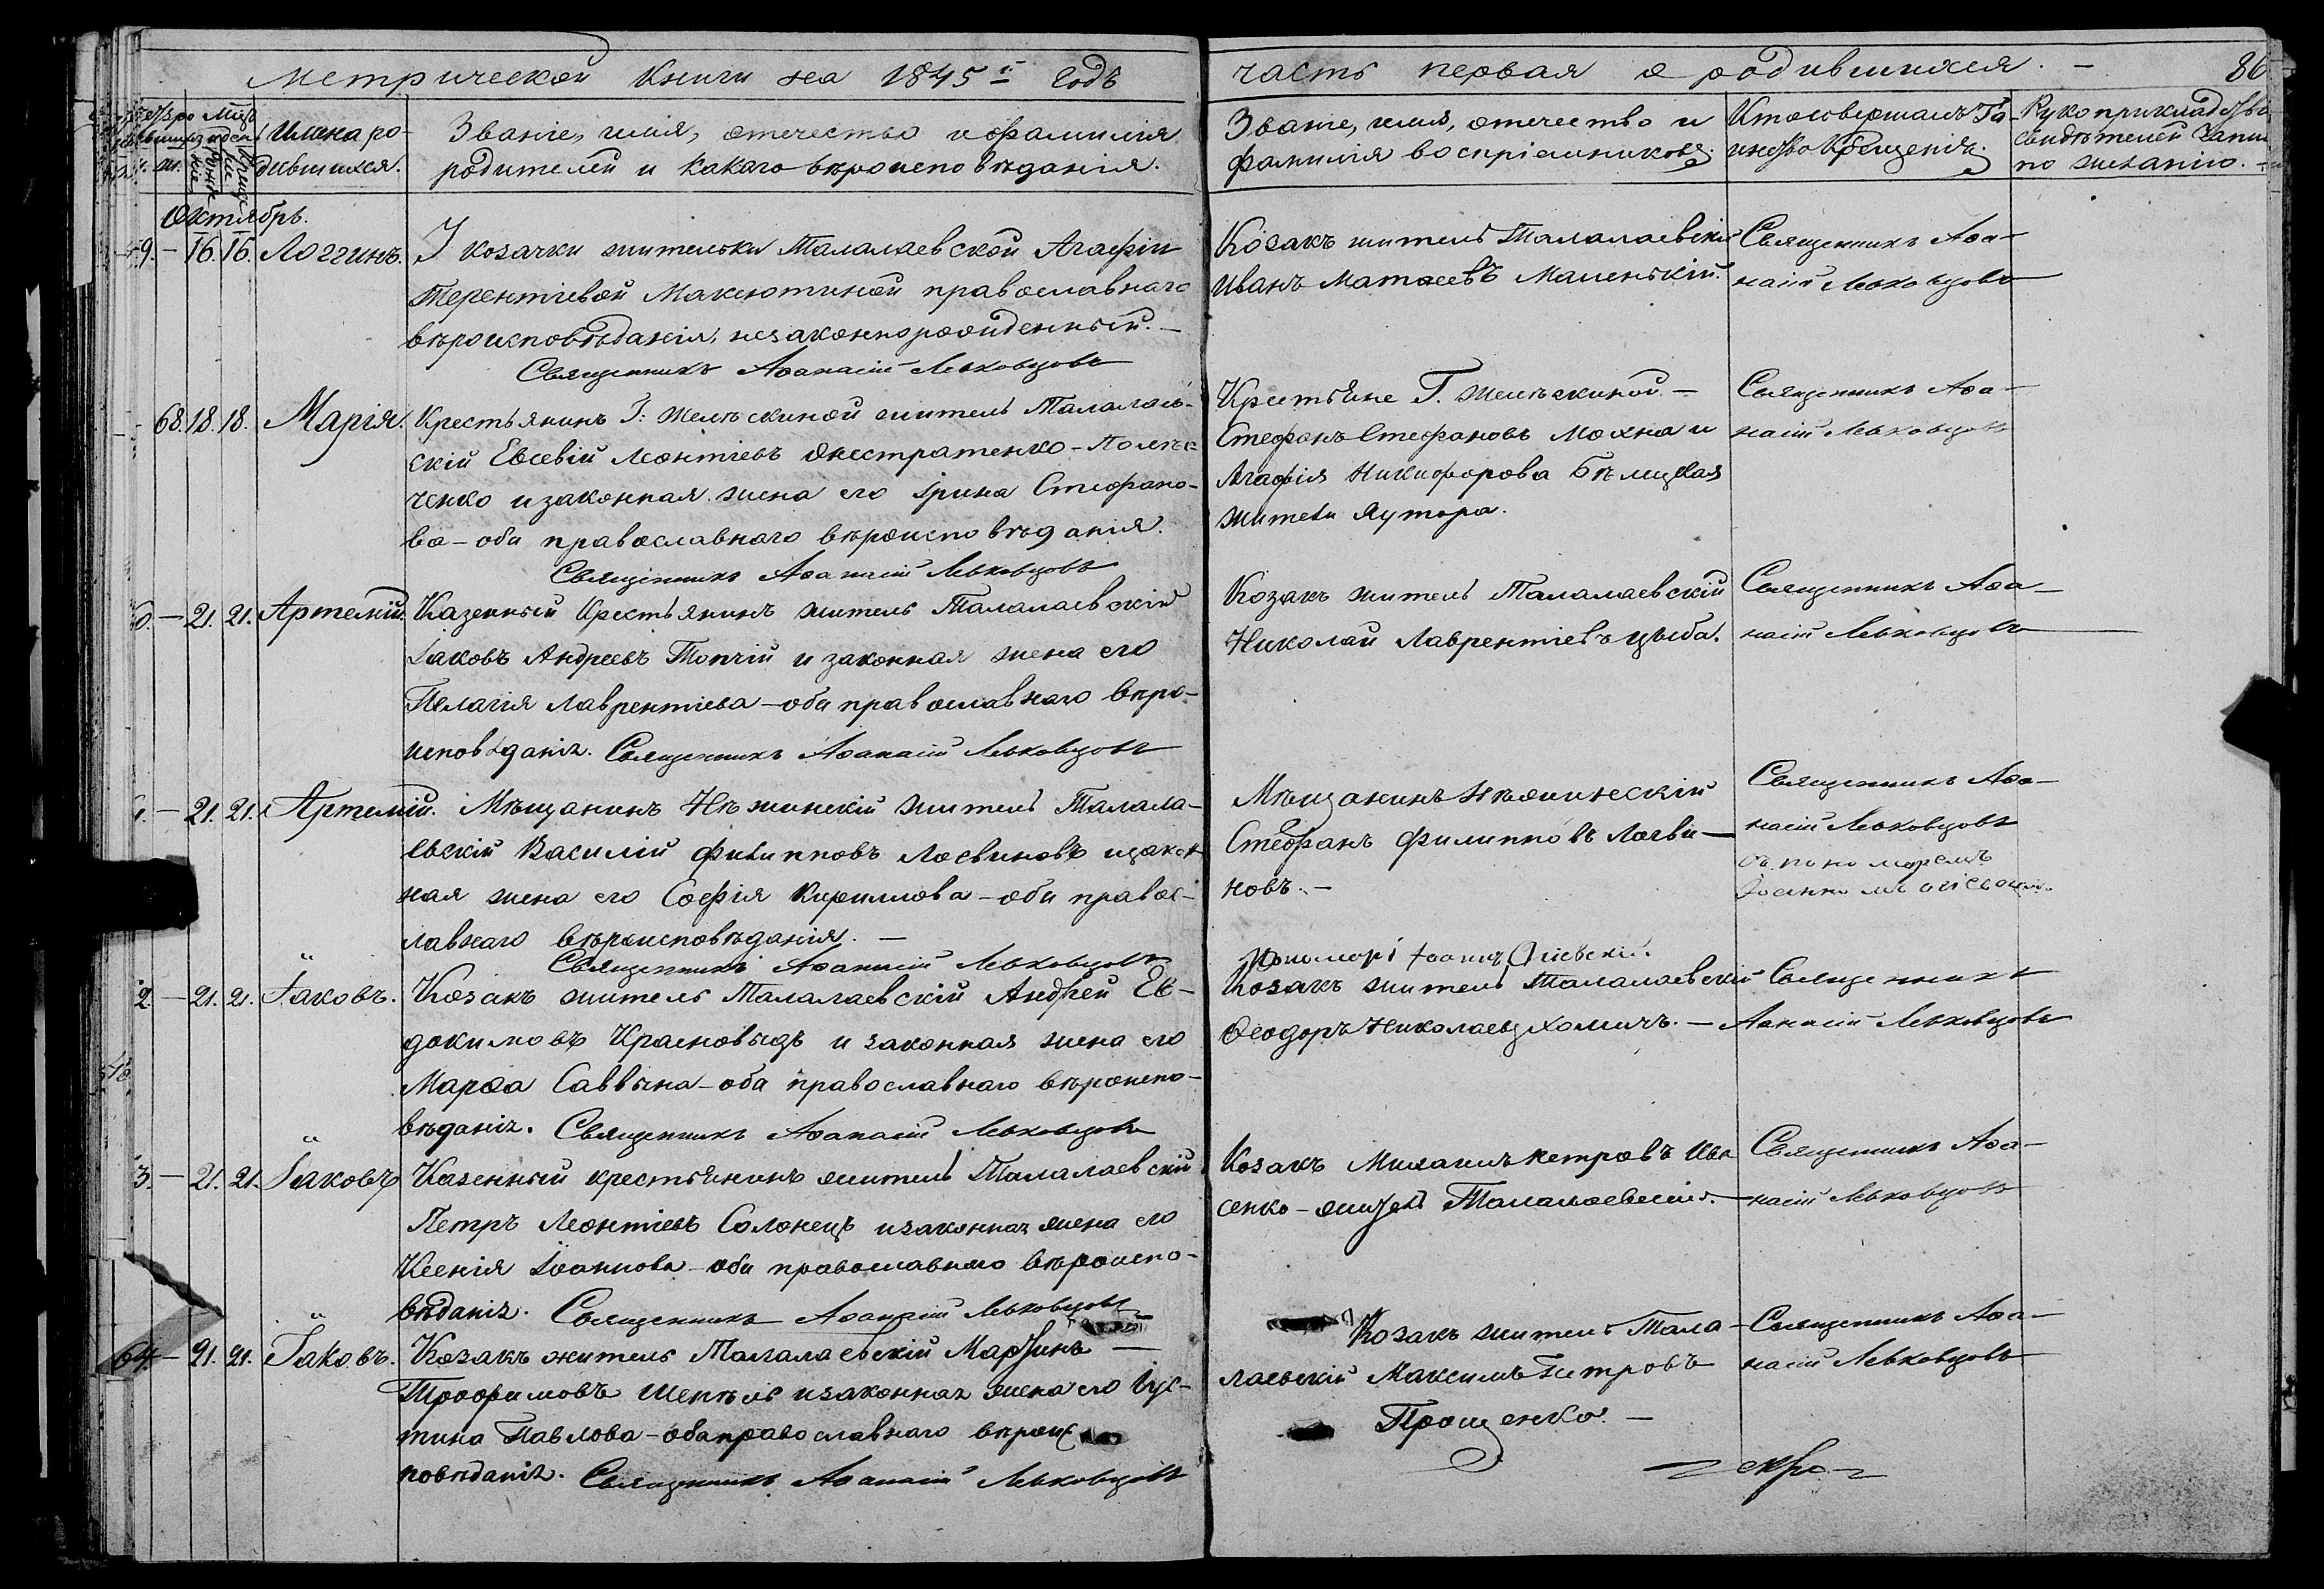 Метрической книги на 1845й годъ
часть первая о родившихся. –
86
Имена ро-
дившихся.
Званіе, имя, отечество и фамилія
родителей и какаго вѣроисповѣданія.
Званіе, имя, отечество и
фамилія воспріемниковъ.
Кто совершалъ Та
инство Крещенія.
Рукоприкладство
свидѣтелей запи
по желанію. –
Октябрь.
9. – 16. 16. Логгинъ.
У козачки жительки Талалаевской Агафіи
Терентіевой Максютиной православнаго
вѣроисповѣданія, незаконнорожденный. –
Священникъ Аѳанасій Левковцовъ
Козакъ житель Талалаевскій
Иванъ Матѳеевъ Маленькій.
Священникъ Аѳа-
насій Левковцовъ
68. 18. 18. Марія.
Крестьянинъ Г: житель Талалаев-
скій Евсевій Леонтіевъ
ченко и законная жена его Ірина Стефано-
ва – оба православнаго вѣроисповѣданія.
Священникъ Аѳанасій Левковцовъ
Крестьяне Г. –
Стефанъ Стефановъ Мохна и
Агафія Никифорова Бѣлицкая
жители Хутора.
Священникъ Аѳа-
насій Левковцовъ
0. – 21. 21. Артемій.
Казенный Крестьянинъ житель Талалаевскій
Іаковъ Андреевъ Топчій и законная жена его
Пелагія Лаврентіева – оба православнаго вѣро-
исповѣданія. Священникъ Аѳанасій Левковцовъ
Козакъ житель Талалаевскій
Николай Лаврентіевъ Цыба.
Священникъ Аѳа-
насій Левковцовъ
1. – 21. 21. Артемій.
Мѣщанинъ Нѣжинскій житель Талала-
евскій Василій Филипповъ Логвиновъ и закон
ная жена его Софія Кириллова – оба правос-
лавнаго вѣроисповѣданія. –
Священникъ Аѳанасій Левковцовъ
Мѣщанинъ Нѣжинскій
Стефанъ Филипповъ Логви-
новъ. –
Священникъ Аѳа-
насій Левковцовъ
съ пономаремъ
Пономарь Іоаннъ
2. – 21. 21. Іаковъ.
Козакъ житель Талалаевскій Андрей Ев-
докимовъ Красновыдъ и законная жена его
Марѳа Саввична – оба православнаго вѣроиспо-
вѣданія. Священникъ Аѳанасій Левковцовъ
Козакъ житель Талалаевскій
Ѳеодоръ Николаевъ Хомичъ. –
Священникъ
Аѳанасій Левковцовъ
3. – 21. 21. Іаковъ
Казенный крестьянинъ житель Талалаевскій
Петръ Леонтіевъ Солонецъ и законная жена его
Ксенія Іоаннова – оба православнаго вѣроиспо-
вѣданія. Священникъ Аѳанасій Левковцовъ
Козакъ Михаилъ Петровъ Ива
сенко – житель Талалаевскій. –
Священникъ Аѳа-
насій Левковцовъ
64. – 21. 21. Іаковъ.
Козакъ житель Талалаевскій Мартинъ –
Трофимовъ Шепель и законная жена его Іус-
тина Павлова – оба православнаго вѣроис
повѣданія. Священникъ Аѳанасій Левковцовъ
Козакъ житель Тала-
лаевскій Максимъ Петровъ
Прощенко. –
Священникъ Аѳа-
насій Левковцовъ